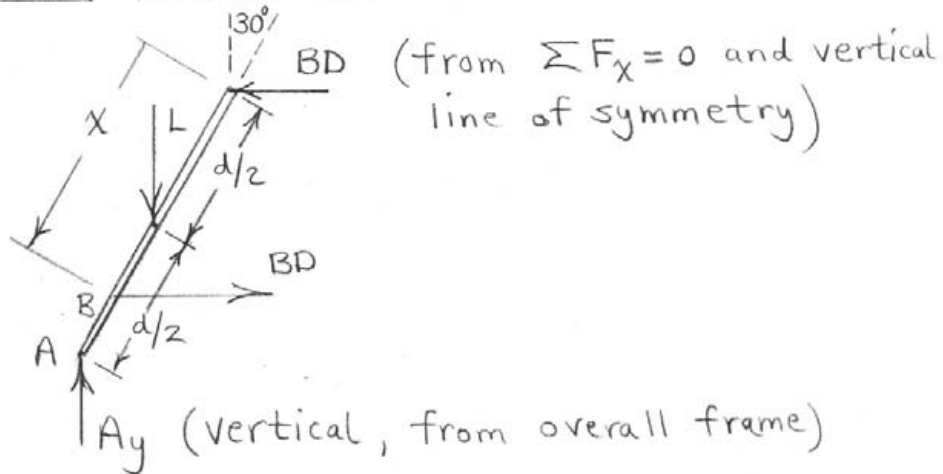 30°
BD (from ΣFx = 0 and vertical
line of symmetry)
x
L
d/2
BD
B
d/2
A
Ay (vertical, from overall frame)